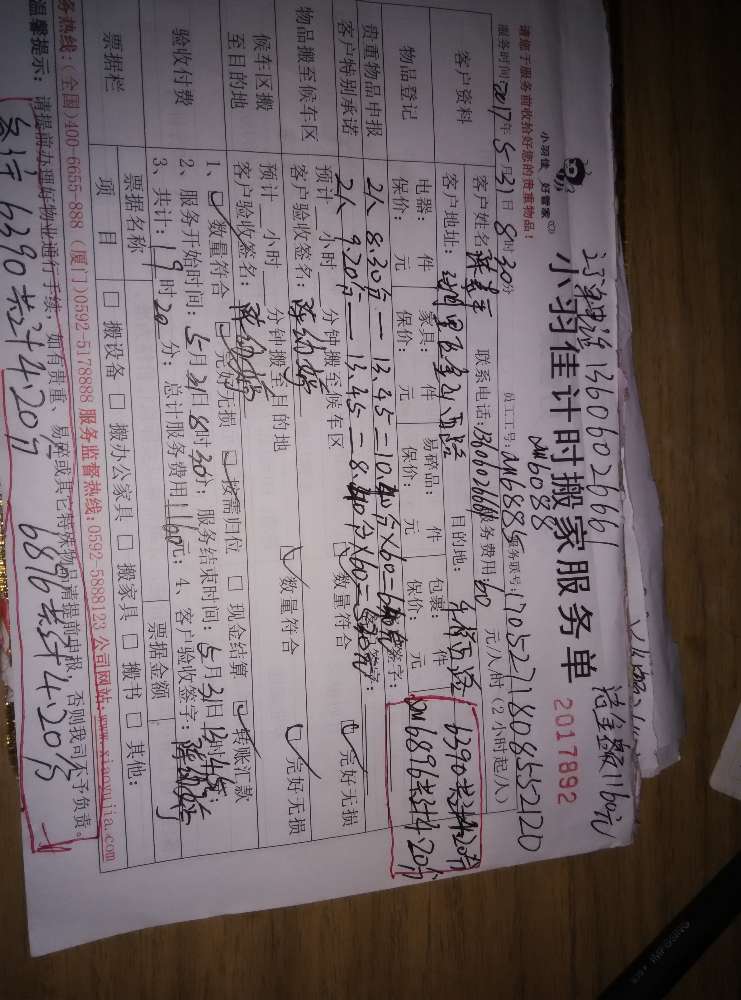 订单电话13606026661 结金额1160元
小羽佳 好管家
小羽佳计时搬家服务单 2017892
请您于服务前收拾好您的贵重物品!
DM6088
服务时间2017年5月31日8时30分 员工工号:DM6885 服务账号:1705271808552120
客户资料
客户姓名 联系电话:13606026661 服务费用:60元/人.时 (2小时起/人)
客户地址: 目的地:
物品登记
电器: 件 家具: 件 易碎品: 件 包裹: 件
保价: 元 保价: 元 保价: 元 保价: 元
6390共计4.20分
DM6896共计4.20分
贵重物品申报 2人 8.30分—13.45=10.40分×60= 签字:
客户特别承诺 2人 9.20分—13.45=8.40分×60= 签字:
物品搬至候车区
预计 小时 分钟搬至候车区
客户验收签名: 数量符合 完好无损
候车区搬至目的地
预计 小时 分钟搬至目的地
客户验收签名: 数量符合 完好无损
验收付费
1、数量符合 完好无损 按需归位 □ 现金结算 转账汇款
2、服务开始时间:5月31日8时30分; 服务结束时间:5月31日13时45分;
3、共计:19时20分; 总计服务费用1160元; 4、客户验收签字:
票据栏
票据名称 票据金额
项目 □ 搬设备 □ 搬办公家具 □ 搬家具 □ 搬书 □ 其他:
务热线:(全国)400-6655-888 (厦门)0592-5178888 服务监督热线:0592-5888123 公司网站:www.xiaoyujia.com
温馨提示: 请提前办理好物业通行手续,如有贵重、易碎或其它特殊物品请提前申报,否则我司不予负责。
6390共计4.20分 6896共计4.20分